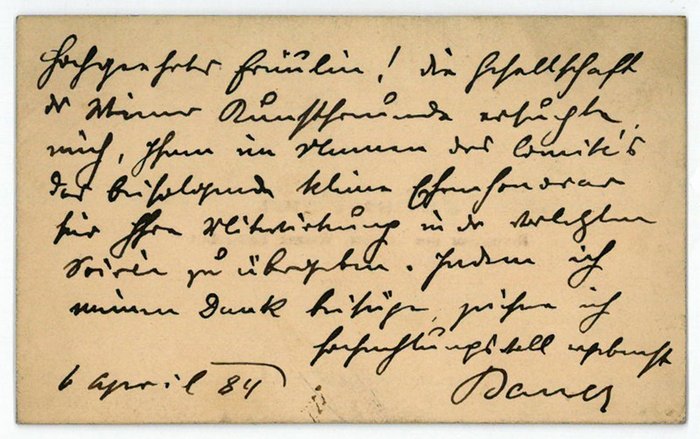 Hochgeehrtes Fräulein! Die Gesellschaft
der Wiener Kunstfreunde ersuchte
mich, Ihnen im Namen des Comité's
das beifolgende kleine Ehrenhonorar
für Ihre Mitwirkung in der vorletzten
Soirée zu übergeben. Indem ich
meinen Dank beifüge, zeichne ich
hochachtungsvoll ergebenst
6 April 84